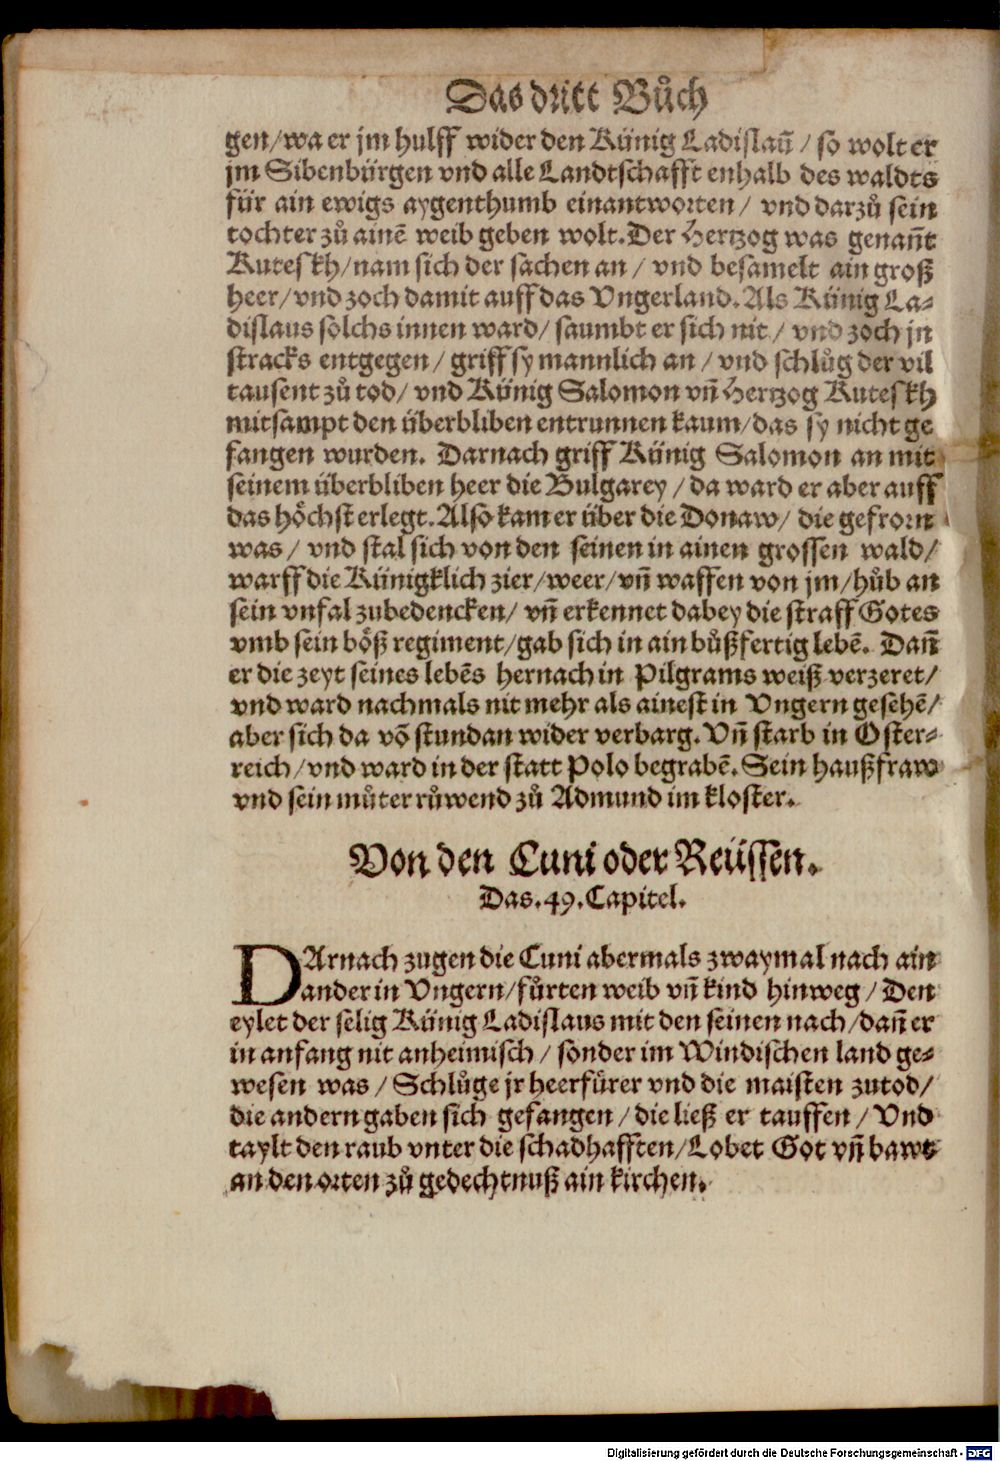 Das dritt Bůch
gen/wa er jm hulff wider den Künig Ladislaū/so wolt er
jm Sibenbürgen vnd alle Landtschafft enhalb des waldts
für ain ewigs aygenthumb einantworten/ vnd darzů sein
tochter zů ainē weib geben wolt. Der Hertzog was genañt
Kuteskh/nam sich der sachen an/ vnd besamelt ain groß
heer/vnd zoch damit auff das Vngerland. Als Künig La-
dislaus solchs innen ward/ saumbt er sich nit/ vnd zoch jn
stracks entgegen/ griff sy mannlich an/ vnd schlůg der vil
tausent zů tod/ vnd Künig Salomon vñ Hertzog Kuteskh
mitsampt den überbliben entrunnen kaum/das sy nicht ge
fangen wurden. Darnach griff Künig Salomon an mit
seinem überbliben heer die Bulgarey/da ward er aber auff
das höchst erlegt. Also kam er über die Donaw/ die gefrorn
was/ vnd stal sich von den seinen in ainen grossen wald/
warff die Künigklich zier/weer/vñ waffen von jm/hůb an
sein vnfal zubedencken/ vñ erkennet dabey die straff Gotes
vmb sein böß regiment/gab sich in ain bůßfertig lebē. Dañ
er die zeyt seines lebēs hernach in Pilgrams weiß verzeret/
vnd ward nachmals nit mehr als ainest in Vngern gesehē/
aber sich da vō stundan wider verbarg. Vñ starb in Oster-
reich/vnd ward in der statt Polo begrabē. Sein haußfraw
vnd sein můter růwend zů Admund im kloster.
Von den Cuni oder Reüssen.
Das. 49. Capitel.
DArnach zugen die Cuni abermals zwaymal nach ain
ander in Vngern/fůrten weib vñ kind hinweg/ Den
eylet der selig Künig Ladislaus mit den seinen nach/dañ er
in anfang nit anheimisch/ sonder im Windischen land ge-
wesen was/ Schlůge jr heerfürer vnd die maisten zutod/
die andern gaben sich gefangen/die ließ er tauffen/ Vnd
taylt den raub vnter die schadhafften/Lobet Got vñ bawt
an den orten zů gedechtnuß ain kirchen.
Digitalisierung gefördert durch die Deutsche Forschungsgemeinschaft - DFG